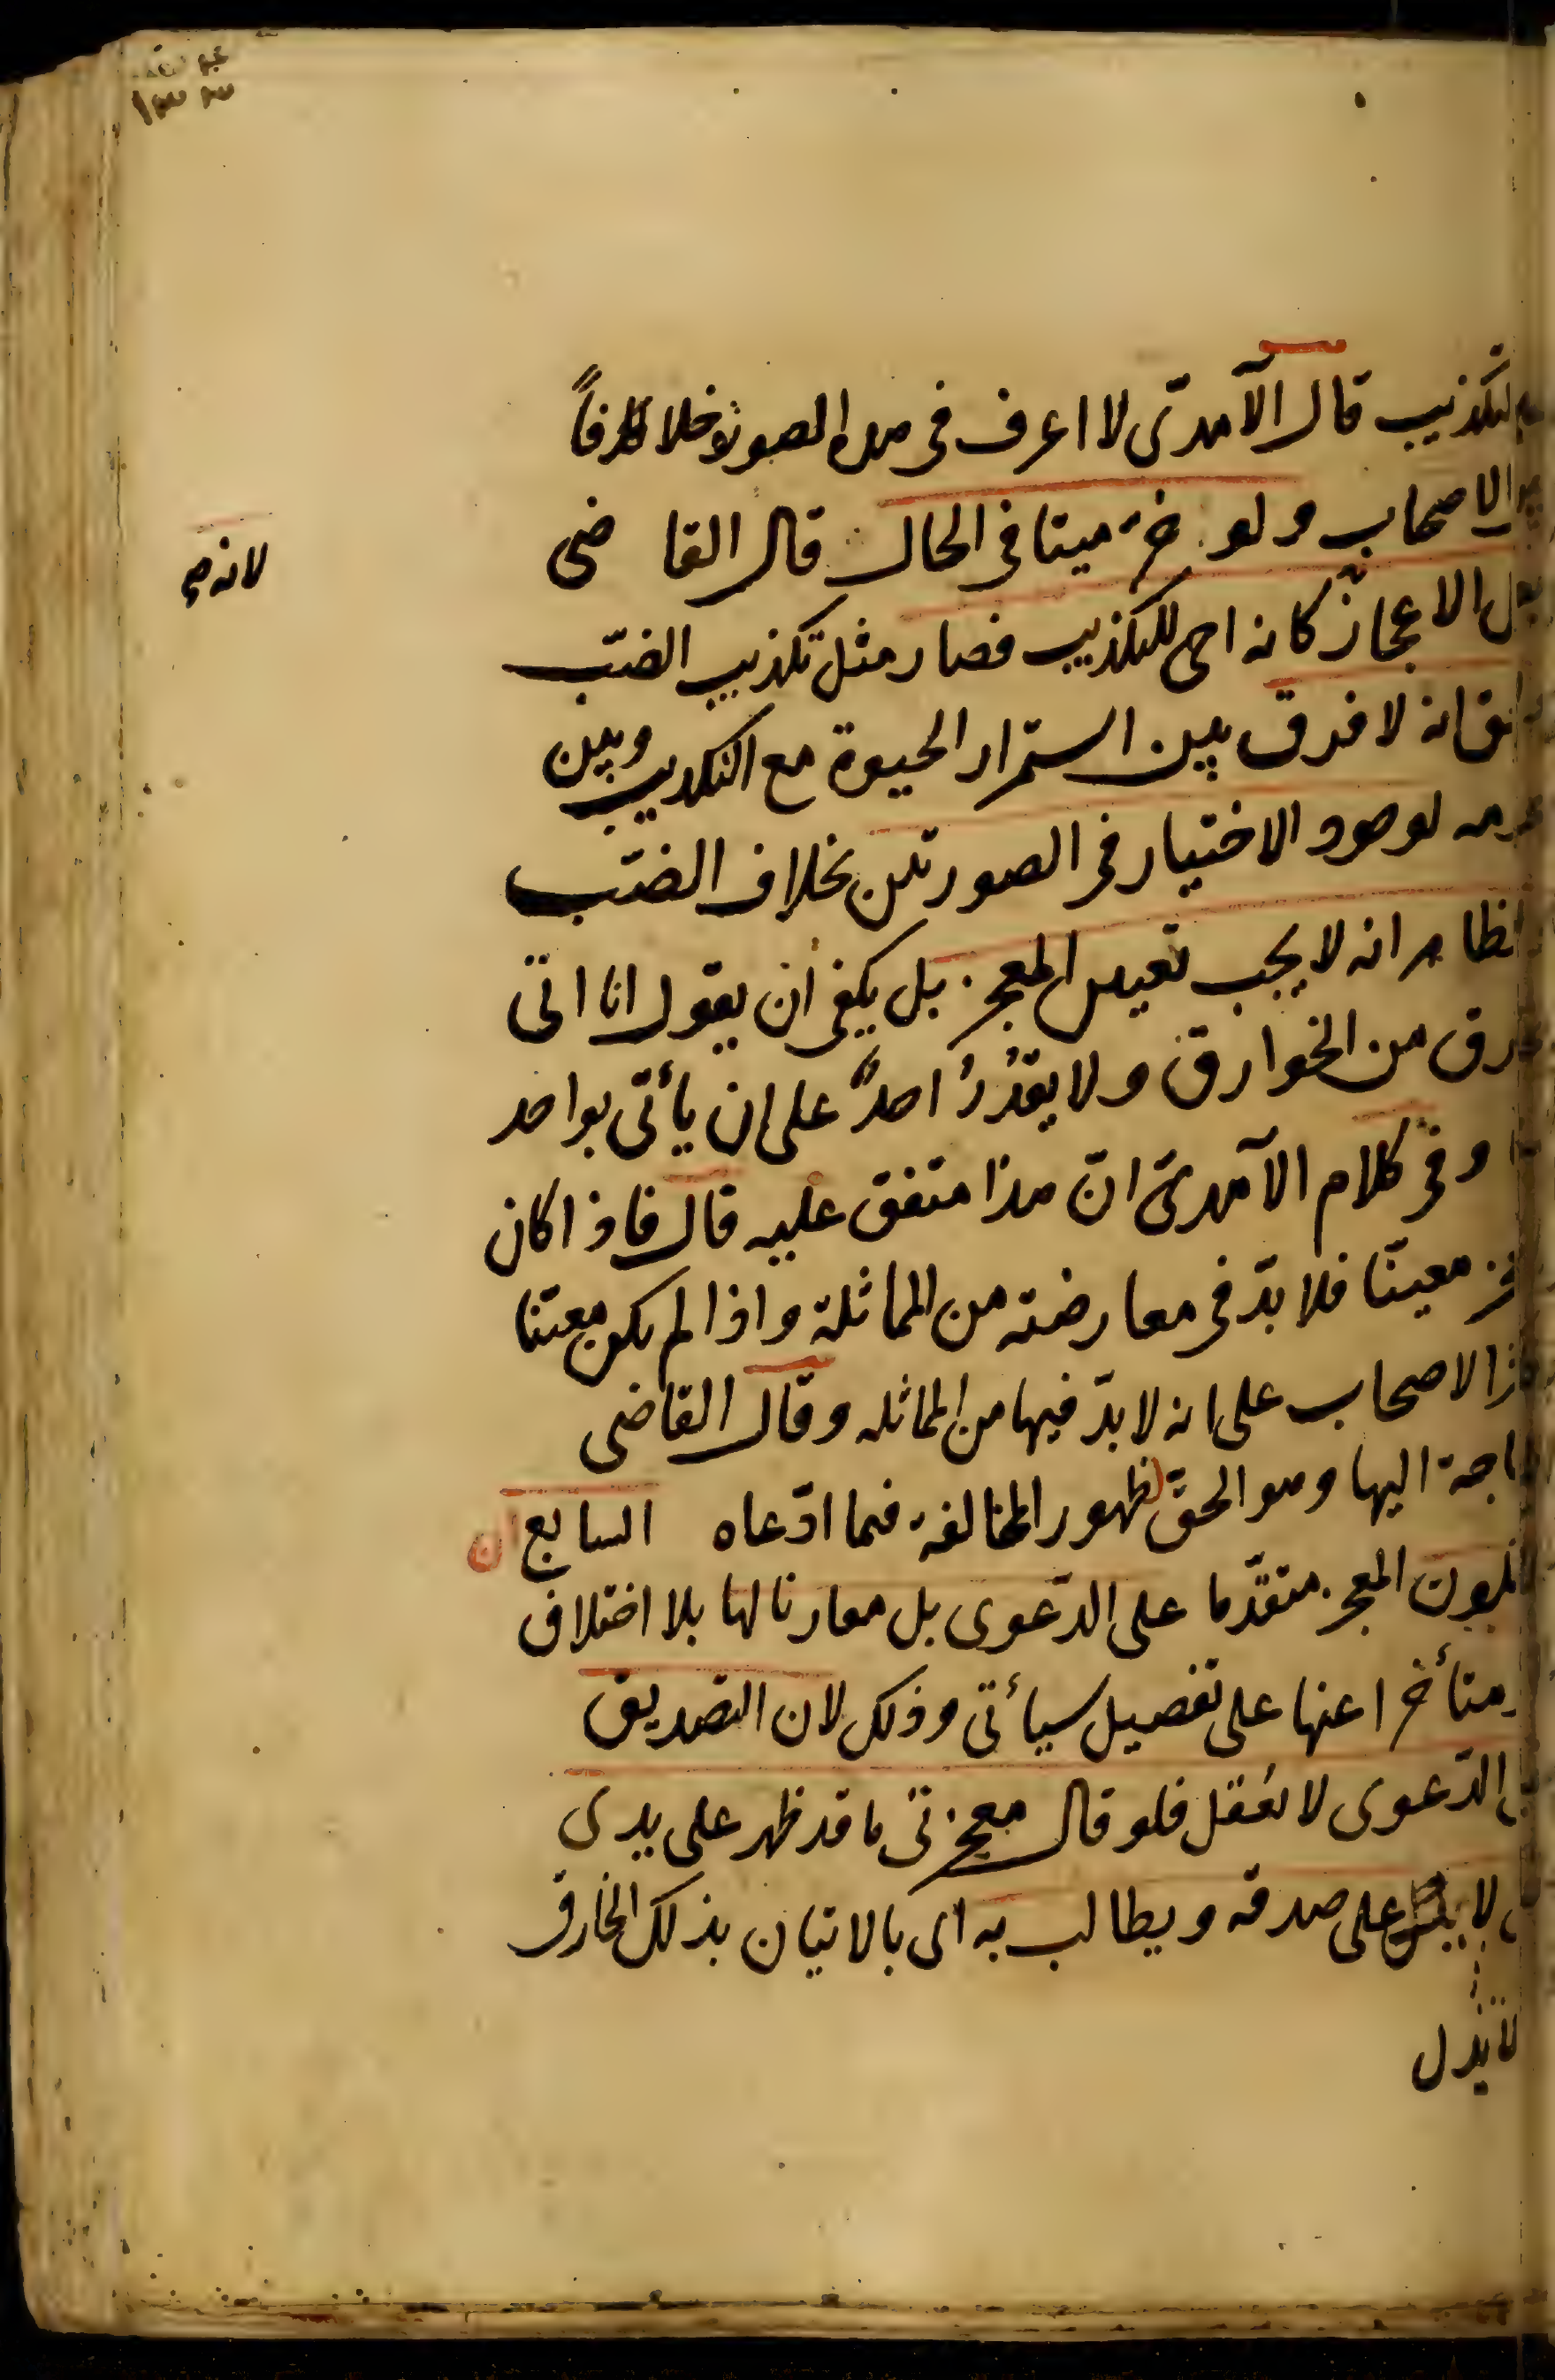 للتكذيب قال الآمدى لا اعرف فى هذه الصورة خلافا
الاصحاب ولو خرّ ميتا فى الحال قال القاضى
الاعجاز كانه احى للتكذيب فصار مثل تكذيب الضبّ
انه لا فرق بين استمرار الحيوة مع التكذيب وبين
لوجود الاختيار فى الصورتين بخلاف الضبّ
الظاهر انه لا يجب تعيين المعجز بل يكفى ان يقول انا اتى
من الخوارق ولا يقدُرُ احدٌ على ان يأتى بواحد
وفى كلام الآمدىّ انّ هذا متفق عليه قال فاذا كان
معيّنا فلا بدّ فى معارضته من المماثلة واذا لم يكن معيّنا
الاصحاب على انه لا بدّ فيها من المماثله وقال القاضى
حاجة اليها وهو الحقّ لظهور المخالفة فيما ادّعاه السابع ان
يكون المعجز متقدّما على الدّعوى بل مقارنا لها بلا اختلاف
متأخرا عنها على تفصيل سيأتى وذلك لان التصديق
الدّعوى لا يُعقل فلو قال معجزتى ما قد ظهر على يدى
لا على صدقه ويطالب به اى بالاتيان بذلك الخارق
لا يدل
لانه